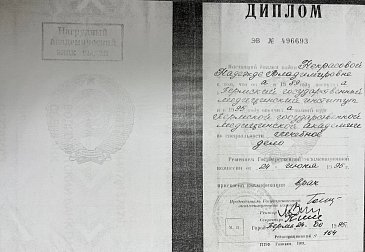 Нагрудный
академический
знак выдан
ДИПЛОМ
ЭВ № 496693
Настоящий диплом выдан Некрасовой
Надежде Владимировне
в том, что она в 1989 году поступила в
Пермский государственный
медицинский институт
и в 1995 году окончила полный курс
Пермской государственной
медицинской академии
по специальности лечебное
дело
Решением Государственной экзаменационной
комиссии от 24 июня 1995 г.
присвоена квалификация врач
Председатель Государственной
экзаменационной комиссии
Ректор
Секретарь
М. П.
Регистрационный № 164